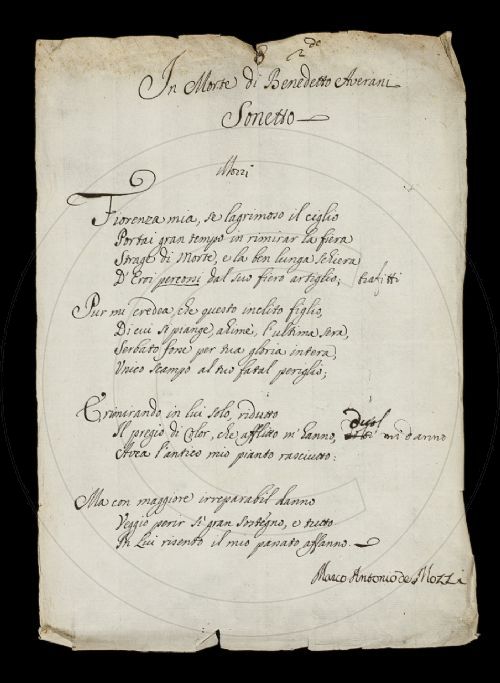 8 2do
In Morte di Benedetto Averani
Sonetto
Mozzi
Fiorenza mia, se lagrimoso il ciglio
Portai gran tempo in rimirar la fiera
Strage di Morte, e la ben lunga schiera
D'Eroi percossi dal suo fiero artiglio; trafitti
Pur mi credea, che questo inclito figlio,
Di cui si piange, ahimè, l'ultima sera,
Serbato fosse per tua gloria intera,
Unico scampo al tuo fatal periglio;
E rimirando in lui solo, ridutto
Il pregio di Color, che afflito m'hanno, mi danno
Avea l'antico mio pianto rasciutto:
Ma con maggiore irreparabil danno
Veggio perir sì gran sostegno, e tutto
In Lui risento il mio passato affanno.
Marco Antonio de Mozzi